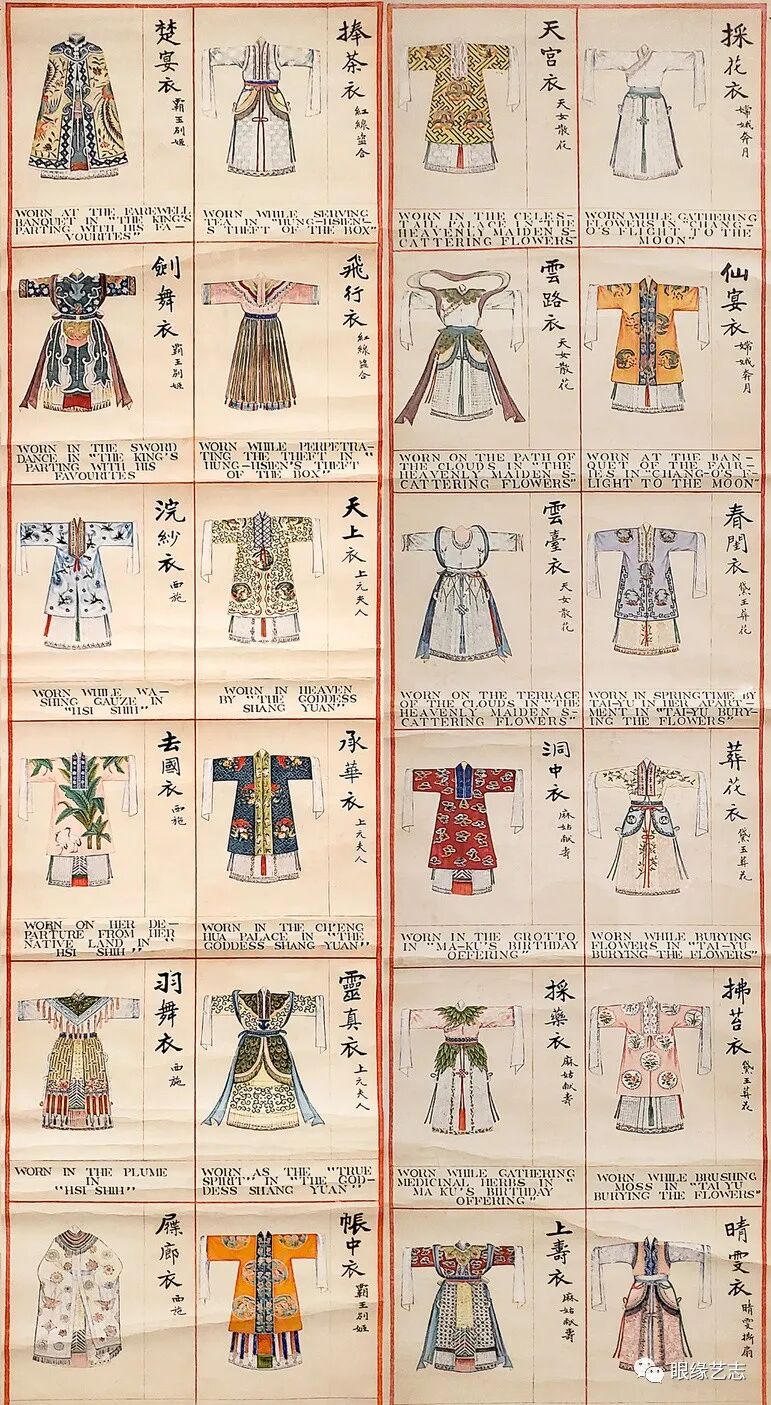 楚宴衣
霸王別姬
WORN AT THE FAREWELL
BANQUET IN "THE KING'S
PARTING WITH HIS FA-
VOURITES"
捧茶衣
紅線盜合
WORN WHILE SERVING
TEA IN "HUNG-HSIEN'S
THEFT OF THE BOX"
天宮衣
天女散花
WORN IN THE CELES-
TAIL PALACE IN "THE
HEAVENLY MAIDEN S-
CATTERING FLOWERS"
採花衣
嫦娥奔月
WORN WHILE GATHERING
FLOWERS IN "CHANG-
O'S FLIGHT TO THE
MOON"
劍舞衣
霸王別姬
WORN IN THE SWORD
DANCE IN "THE KING'S
PARTING WITH HIS
FAVOURITES
飛行衣
紅線盜合
WORN WHILE PERPETRA-
TING THE THEFT IN "
HUNG-HSIEN'S THEFT
OF THE BOX"
雲路衣
天女散花
WORN ON THE PATH OF
THE CLOUDS IN "THE
HEAVENLY MAIDEN S-
CATTERING FLOWERS"
仙宴衣
嫦娥奔月
WORN AT THE BAN-
QUET OF THE FAIR-
IES IN "CHANG-O'S F-
LIGHT TO THE MOON"
浣紗衣
西施
WORN WHILE WA-
SHING GAUZE IN
"HSI SHIH"
天上衣
上元夫人
WORN IN HEAVEN
BY "THE GODDESS
SHANG YUAN"
雲臺衣
天女散花
WORN ON THE TERRACE
OF THE CLOUDS IN "THE
HEAVENLY MAIDEN S-
CATTERING FLOWERS"
春閨衣
黛玉葬花
WORN IN SPRINGTIME BY
TAI-YU IN HER APART-
MENT IN "TAI-YU BURY-
ING THE FLOWERS"
去國衣
西施
WORN ON HER DE-
PARTURE FROM HER
NATIVE LAND IN "
HSI SHIH"
承華衣
上元夫人
WORN IN THE CH'ENG
HUA PALACE IN "THE
GODDESS SHANG YUAN"
洞中衣
麻姑献壽
WORN IN THE GROTTO
IN "MA-KU'S BIRTHDAY
OFFERING"
葬花衣
黛玉葬花
WORN WHILE BURYING
FLOWERS IN "TAI-YU
BURYING THE FLOWERS"
羽舞衣
西施
WORN IN THE PLUME
IN
"HSI-SHIH"
靈真衣
上元夫人
WORN AS THE "TRUE
SPIRIT" IN "THE GOD-
DESS SHANG YUAN"
採藥衣
麻姑献壽
WORN WHILE GATHERING
MEDICINAL HERBS IN "
MA KU'S BIRTHDAY
OFFERING"
拂苔衣
黛玉葬花
WORN WHILE BRUSHING
MOSS IN "TAI YU
BURYING THE FLOWERS"
屧廊衣
西施
帳中衣
霸王別姬
上壽衣
麻姑献壽
晴雯衣
晴雯撕扇
眼缘艺志